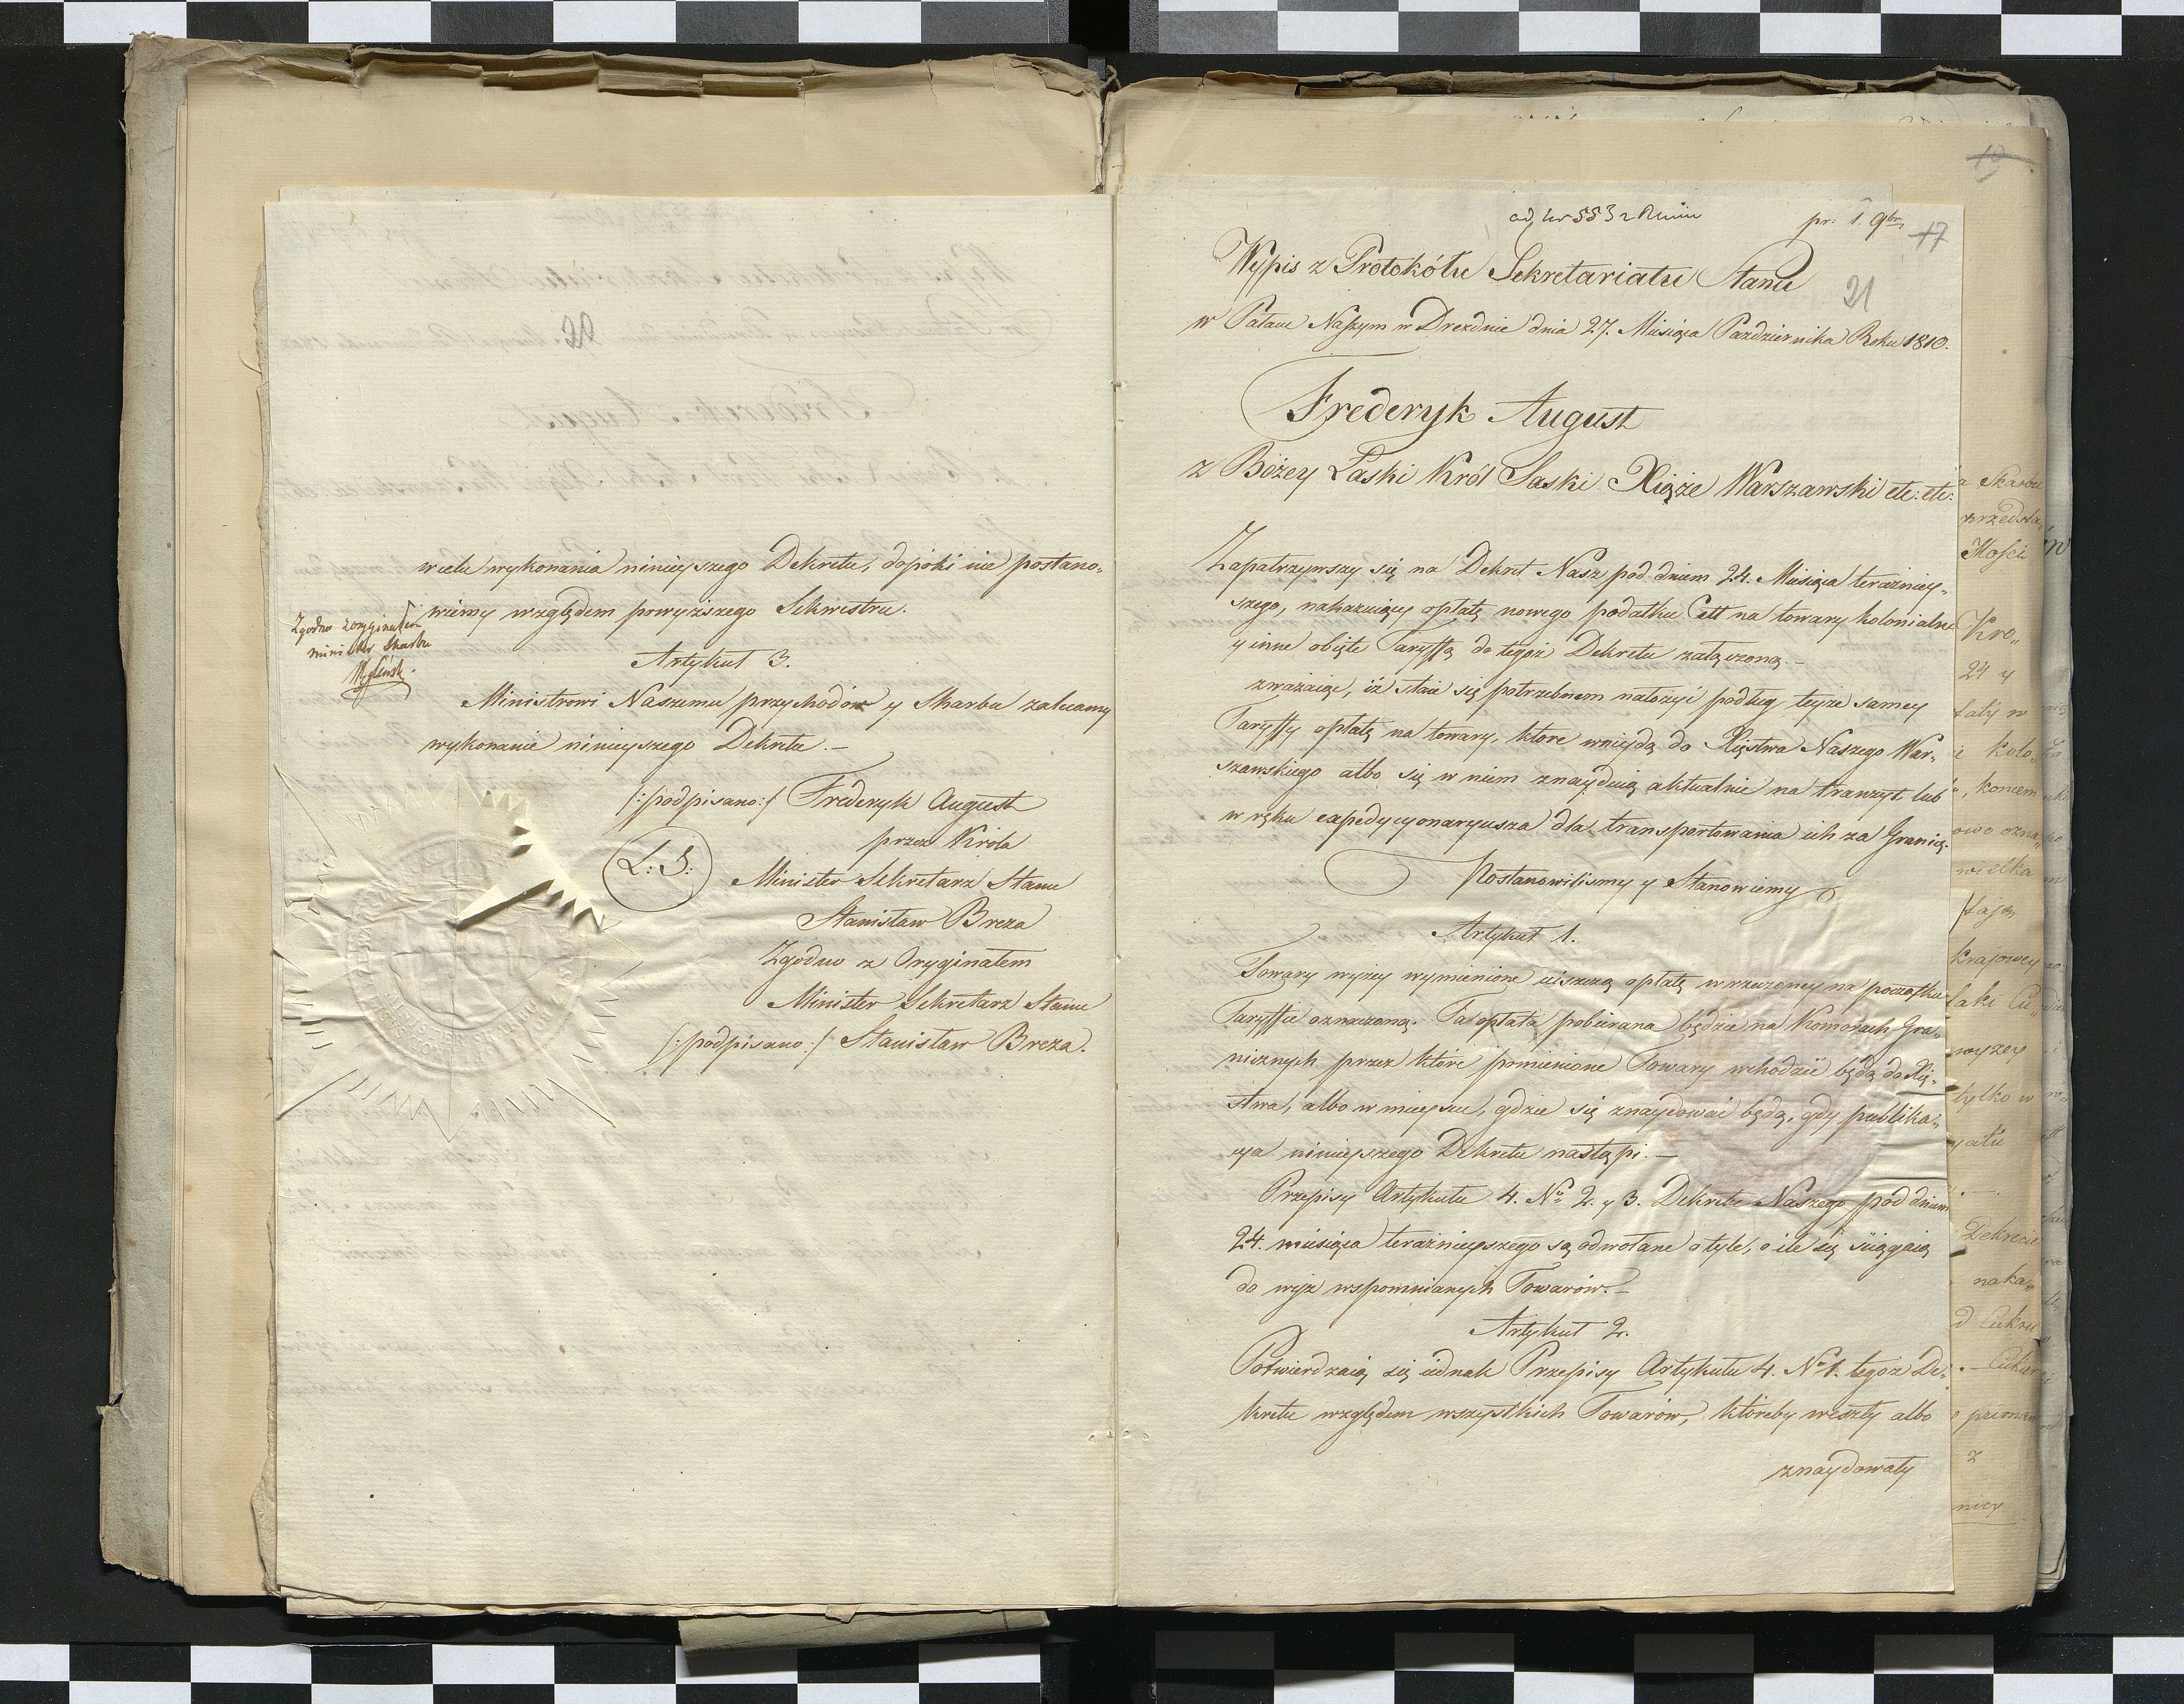 20
w celu wykonania ninieyszego Dekretu, dopóki nie postano„
wiemy względem powyższego Sekwestru.
Zgodno z oryginałem
Minister Skarbu
Węgleński
Artykuł 3.
Ministrowi Naszemu przychodów y Skarbu zalecamy
wykonanie ninieyszego Dekretu.—
/:podpisano:/ Frederyk August
przez Króla
L: S:
Minister Sekretarz Stanu
Stanisław Breza
Zgodno z Oryginałem
Minister Sekretarz Stanu
/:podpisano:/ Stanisław Breza.
19
pr: 1. 9br
17
Wypis z Protokółu Sekretariatu Stanu
21
w Pałacu Naszym w Dreznie dnia 27. Miesiąca Pazdziernika Roku 1810.
Frederyk August
z Bożey Łaski Król Saski Xiąże Warszawski etc: etc:
Zapatrzywszy się na Dekret Nasz pod dniem 24. Miesiąca teraźniey„
szego, nakazuiący opłatę nowego podatku Cełł na towary kolonialne
y inne obięte Taryffą do tegoż Dekretu załączoną.—
zważaiąc, iż staie się potrzebnem nałożyć podług teyże samey
Taryffy opłatę na towary, ktore wniydą do Xięstwa Naszego War„
szawskiego albo się w niem znayduią aktualnie na tranzyt lub
w ręku expedycyonaryusza dla transportowania ich za Granicę.
Postanowilismy y Stanowiemy
Artykuł 1.
Towary wyżey wymienione uiszczą opłatę w rzeczoney na początku
Taryffie oznaczoną. Ta opłata pobierana będzie na Komorach Gra„
nicznych przez które pomienione Towary wchodzić będą do Xię„
stwa, albo w mieyscu, gdzie się znaydować będą, gdy publika„
cya ninieyszego Dekretu nastąpi.—
Przepisy Artykułu 4. No 2. y 3. Dekretu Naszego pod dniem
24. miesiąca teraźnieyszego są odwołane o tyle, o ile się ściągaią
do wyż wspomnianych Towarów.—
Artykuł 2.
Potwierdzaią się iednak Przepisy Artykułu 4. No 1. tegoż De„
kretu względem wszystkich Towarów, któreby weszły albo
znaydowały